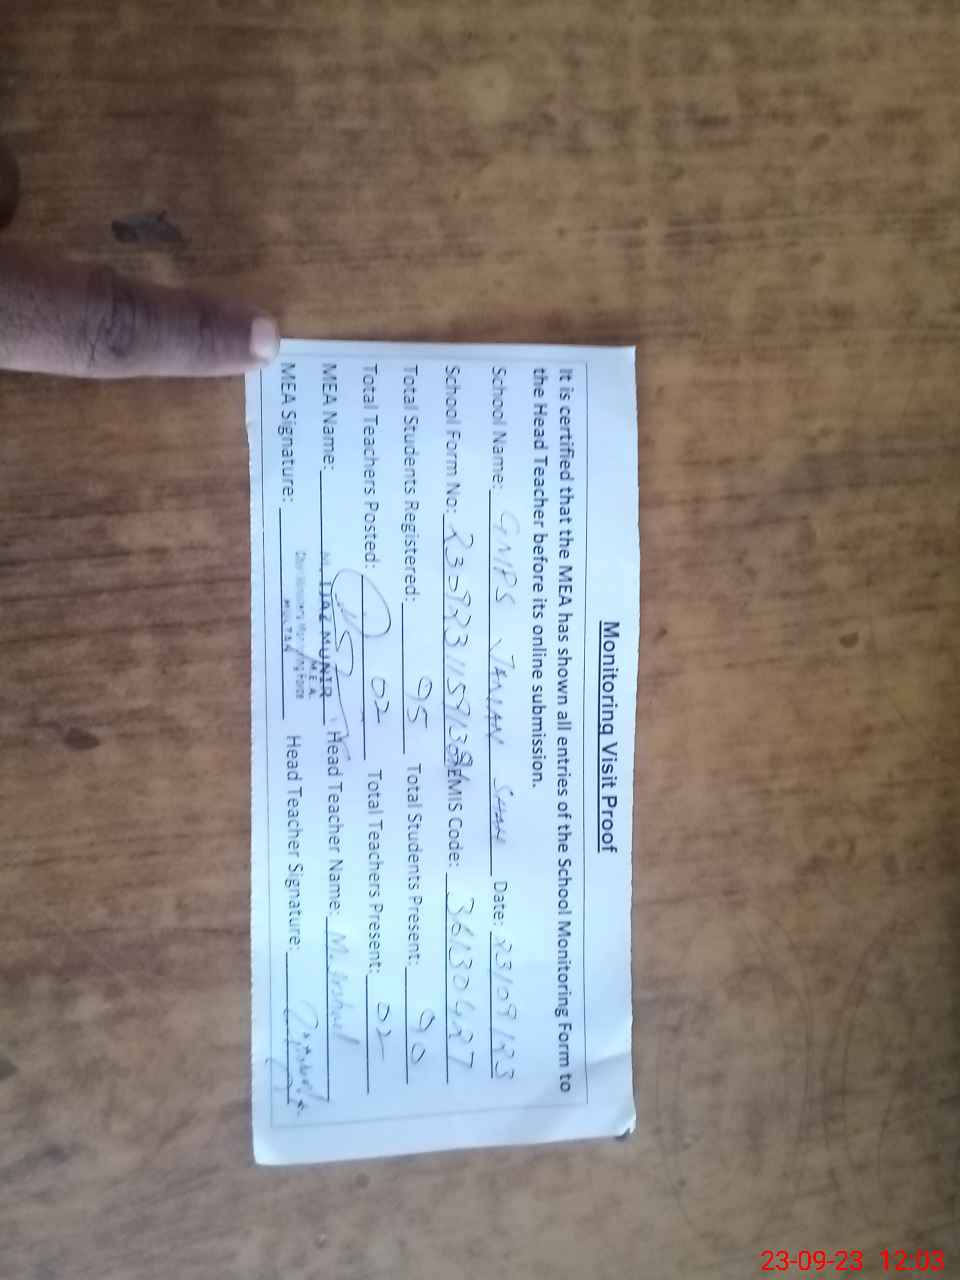 Monitoring Visit Proof
It is certified that the MEA has shown all entries of the School Monitoring Form to
the Head Teacher before its online submission.
School Name: GMPS Date: 23/09/23
School Form No: EMIS Code: 36130427
Total Students Registered: 95 Total Students Present: 90
Total Teachers Posted: 02 Total Teachers Present: 02
MEA Name: IJAZ MUNIR Head Teacher Name: M. Arshad
M.E.A.
MEA Signature: Head Teacher Signature:
MULTAN
23-09-23 12:03